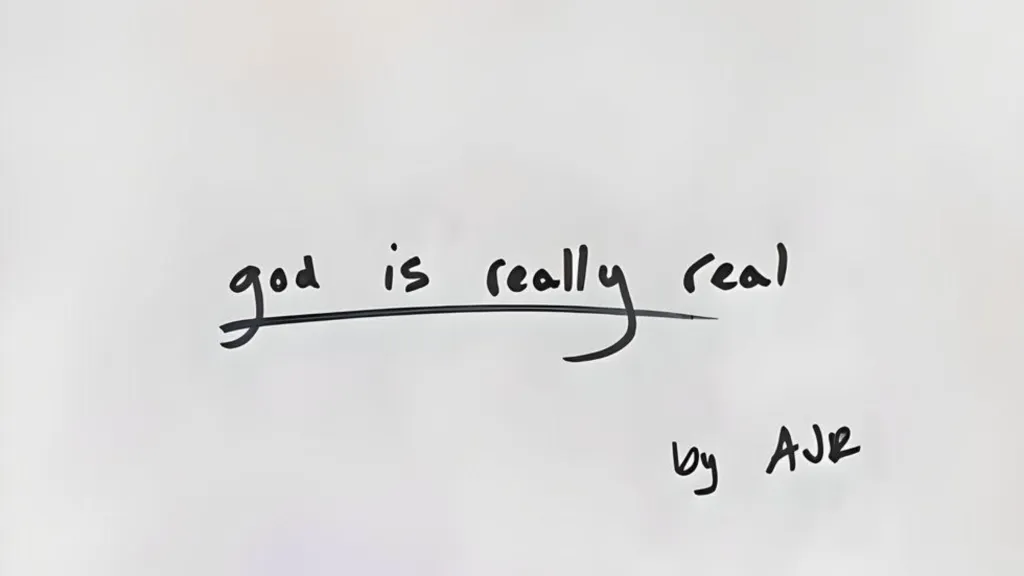 god is really real
by AJR